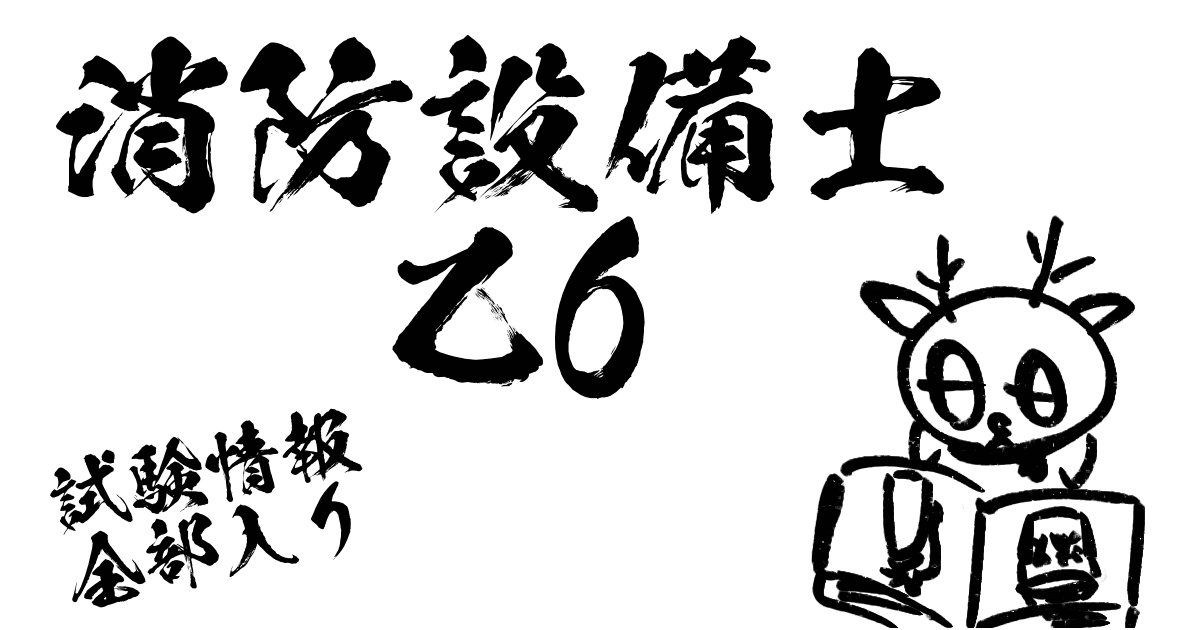 消防設備士
乙6
試験情報
全部入り